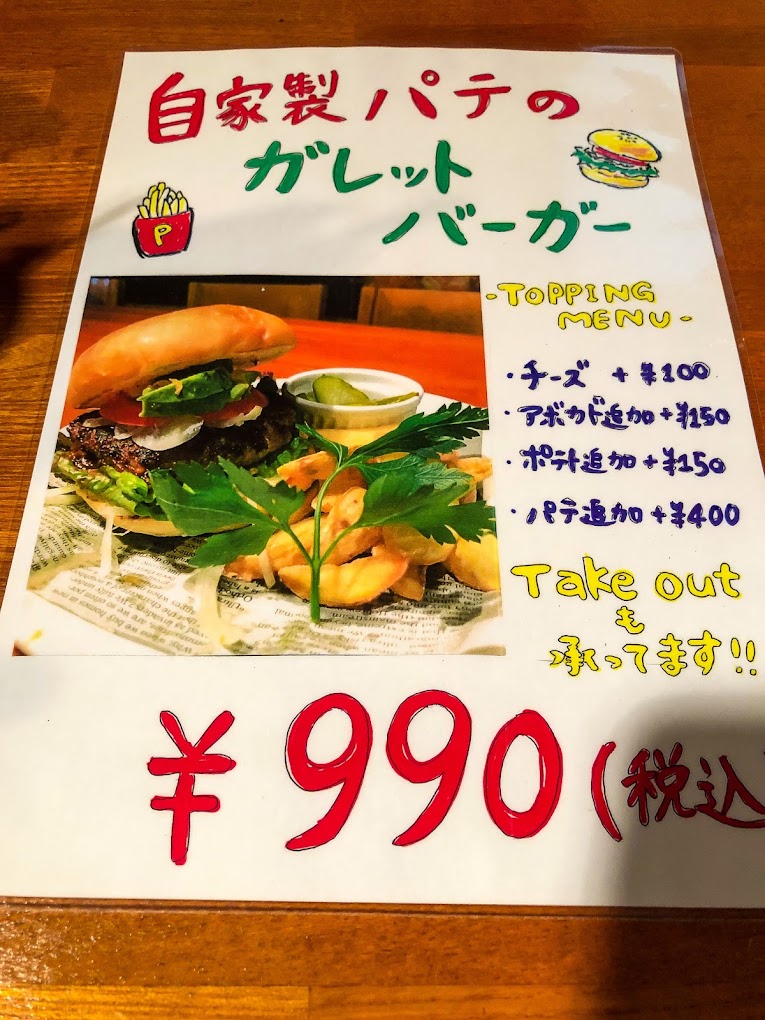 自家製パテの
ガレット
バーガー
P
-TOPPING
MENU-
・チーズ +¥100
・アボカド追加+¥150
・ポテト追加+¥150
・パテ追加+¥400
Take out
も
承ってます!!
¥990(税込)